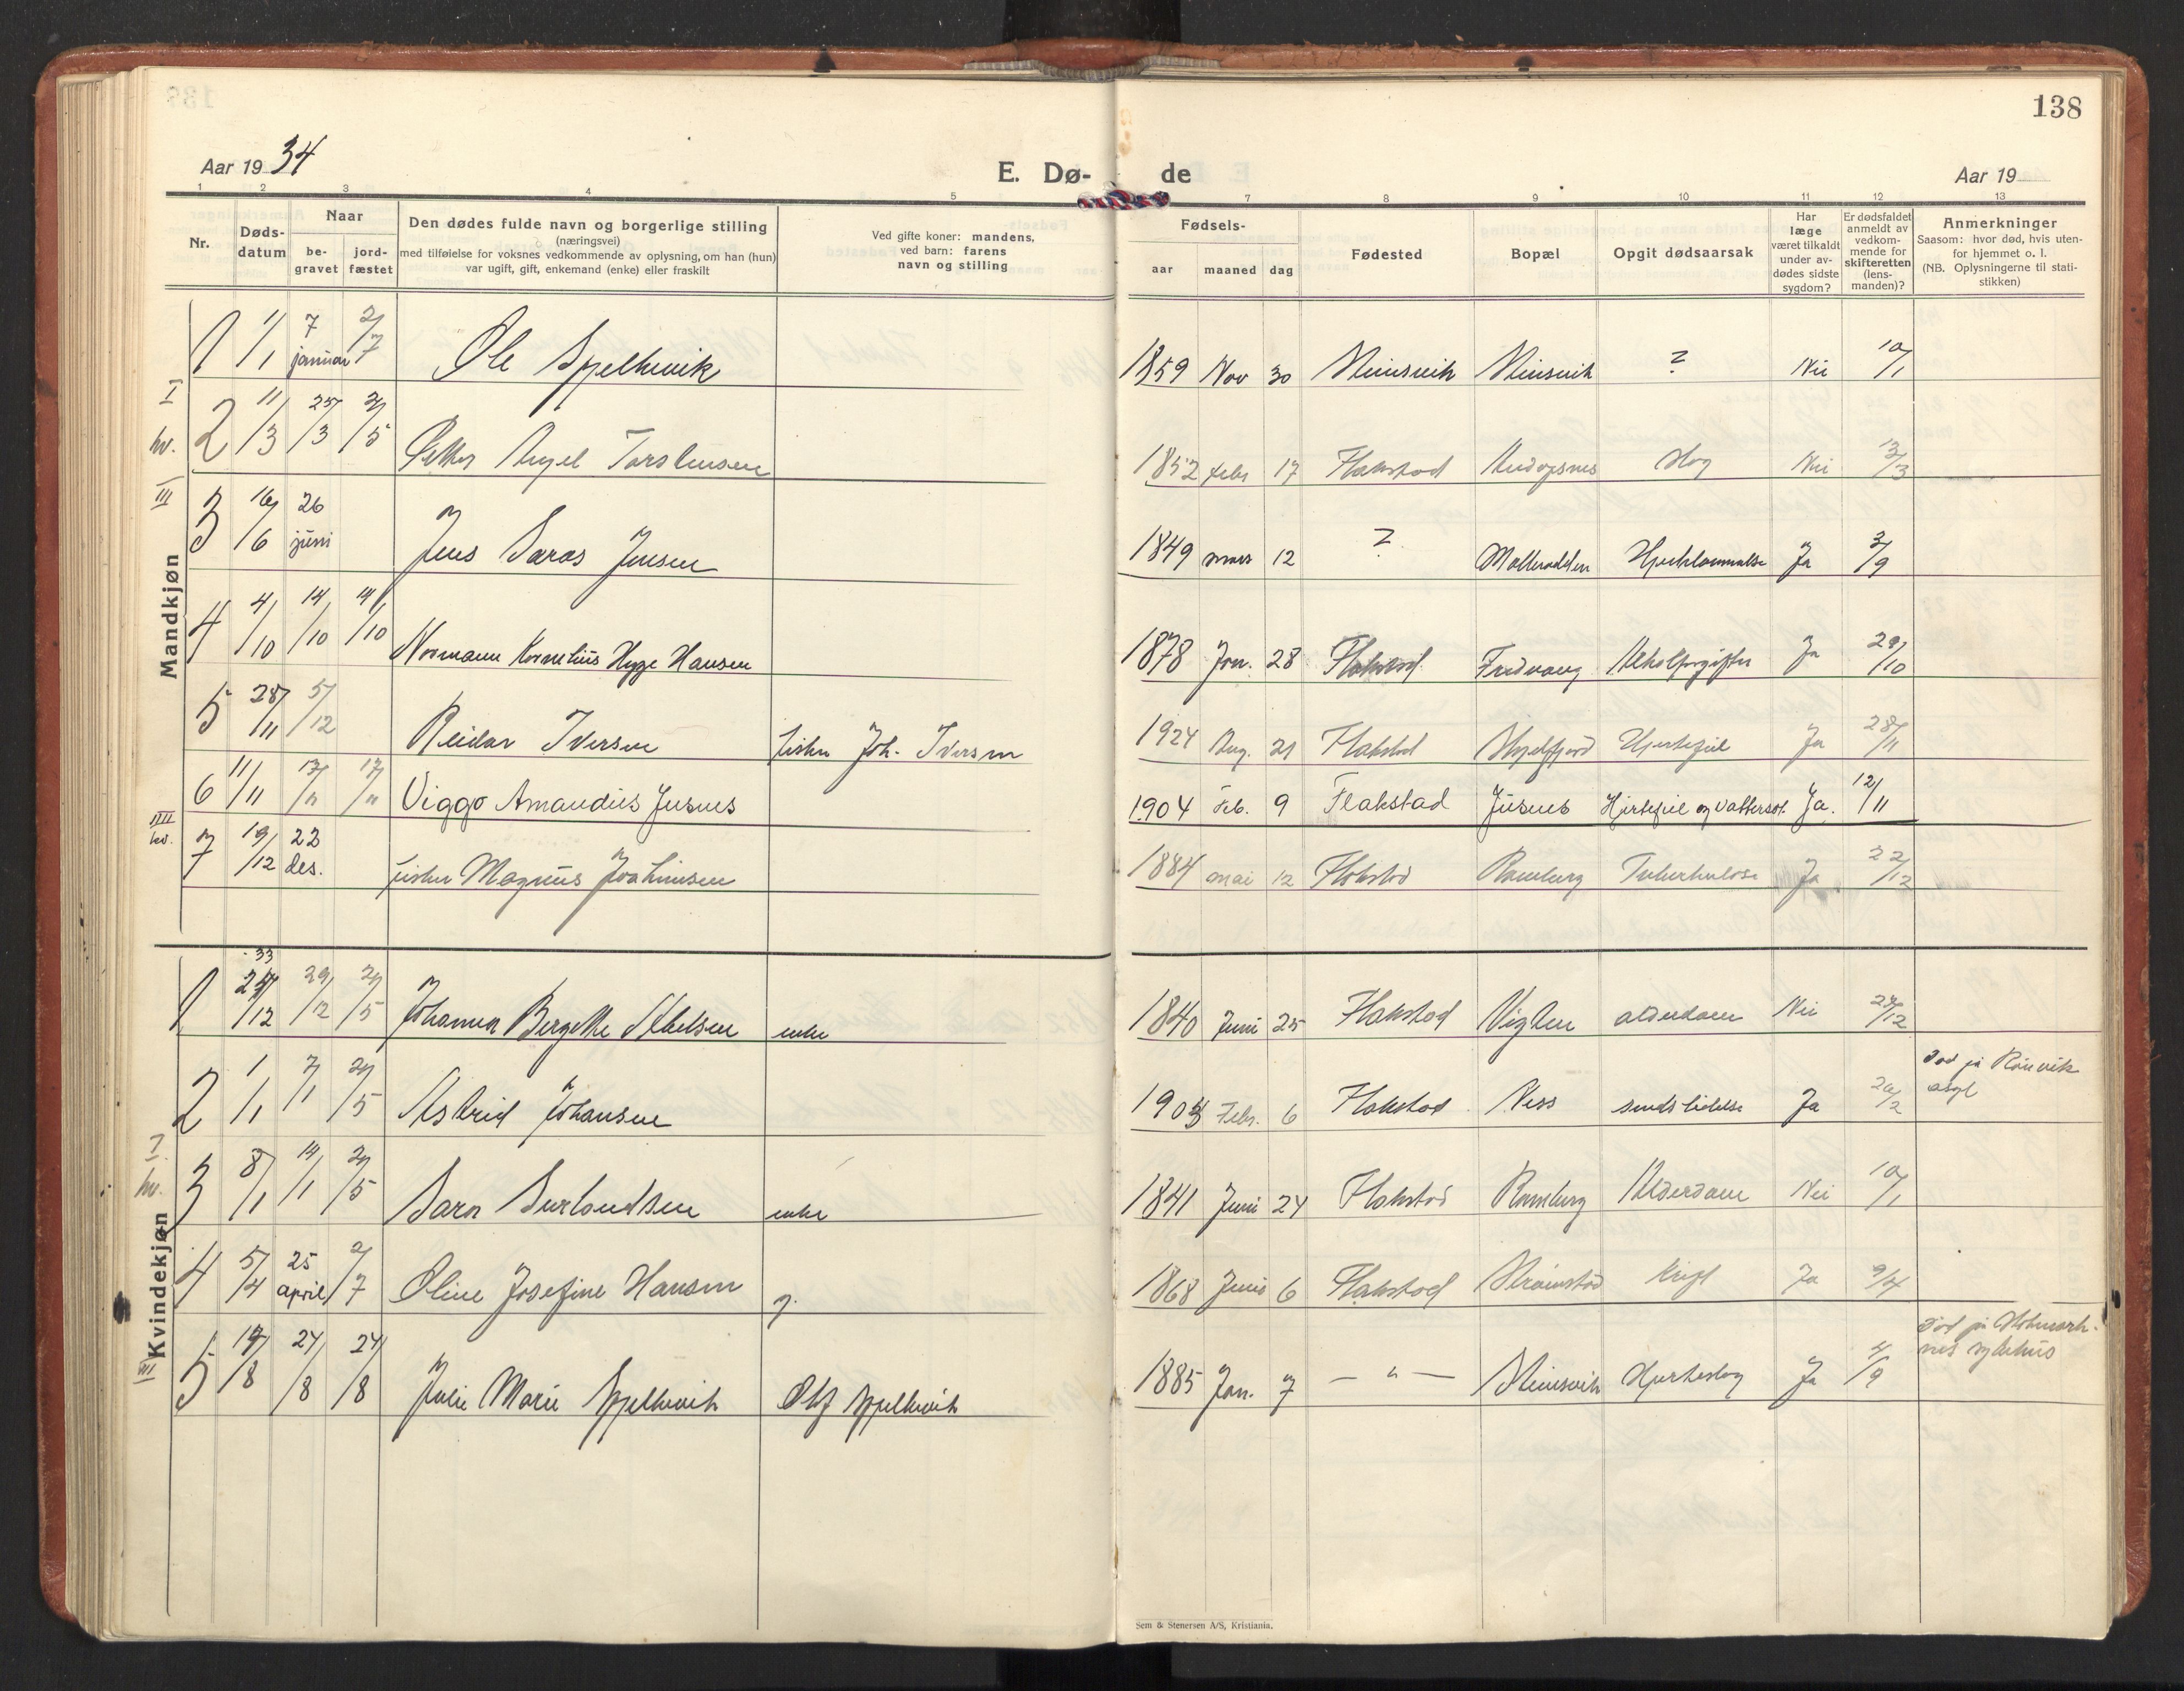 138
Aar 19 34
E. Dø-
de
Aar 19
1 2 3 4 5 7 8 9 10 11 12 13
Nr.
Døds-
datum
Naar
be-
gravet
jord-
fæstet
Den dødes fulde navn og borgerlige stilling
(næringsvei)
med tilføielse for voksnes vedkommende av oplysning, om han (hun)
var ugift, gift, enkemand (enke) eller fraskilt
Ved gifte koner: mandens,
ved barn: farens
navn og stilling
Fødsels-
aar maaned dag
Fødested
Bopæl
Opgit dødsaarsak
Har
læge
været tilkaldt
under av-
dødes sidste
sygdom?
Er dødsfaldet
anmeldt av
vedkom-
mende for
skifteretten
(lens-
manden)?
Anmerkninger
Saasom: hvor død, hvis uten-
for hjemmet o. l.
(NB. Oplysningerne til stati-
stikken)
Mandkjøn
I
hv.
III
1 1/1 7 januar 2/7 Ole Spjelkevik 1859 Nov 30 ? Nei 10/1
2 11/3 25/3 2/5 Petter Angel Torstensen 1852 Febr 17 Flakstad Slag Nei 13/3
3 16/6 26 juni Jens Jensen 1849 mars 12 ? Ja 3/9
4 4/10 14/10 14/10 Normann Kornelius Hansen 1878 Jan. 28 Flakstad Fredvang Ja 29/10
5 28/11 5/12 Reidar Iversen fisker Joh. Iversen 1924 Aug. 21 Flakstad Skjelfjord Hjertefeil Ja 28/11
6 11/11 17/11 17/11 Viggo Amandius Jusnes 1904 Feb. 9 Flakstad Jusnes Hjertefeil og Vattersot. Ja. 12/11
7 19/12 22 des. fisker Magnus Joakimsen 1884 mai 12 Flakstad Ramberg Tuberkulose Ja 22/12
Kvindekjøn
I
hv.
III
1 33 /12 29/12 2/5 Johanna Bergette Abelsen enke 1840 Juni 25 Flakstad Vigten alderdom Nei /12
2 1/1 7/1 2/5 Astrid Johansen Febr. 6 Flakstad Ness sindslidelse Ja 20/2 Død på Rönvik
asyl
3 8/1 14/1 2/5 Sara enke 1841 Juni 24 Flakstad Ramberg Alderdom Nei 10/1
4 5/4 25 april 2/7 Oline Josefine Hansen g. 1868 Juni 6 Flakstad Kreft Ja 9/4
5 /8 24/8 24/8 Julie Marie Spjelkevik Olaf Spjelkevik 1885 Jan. 7 — " — Hjerteslag Ja 4/9 Død på Stokmark-
nes sykehus
Sem & Stenersen A/S, Kristiania.